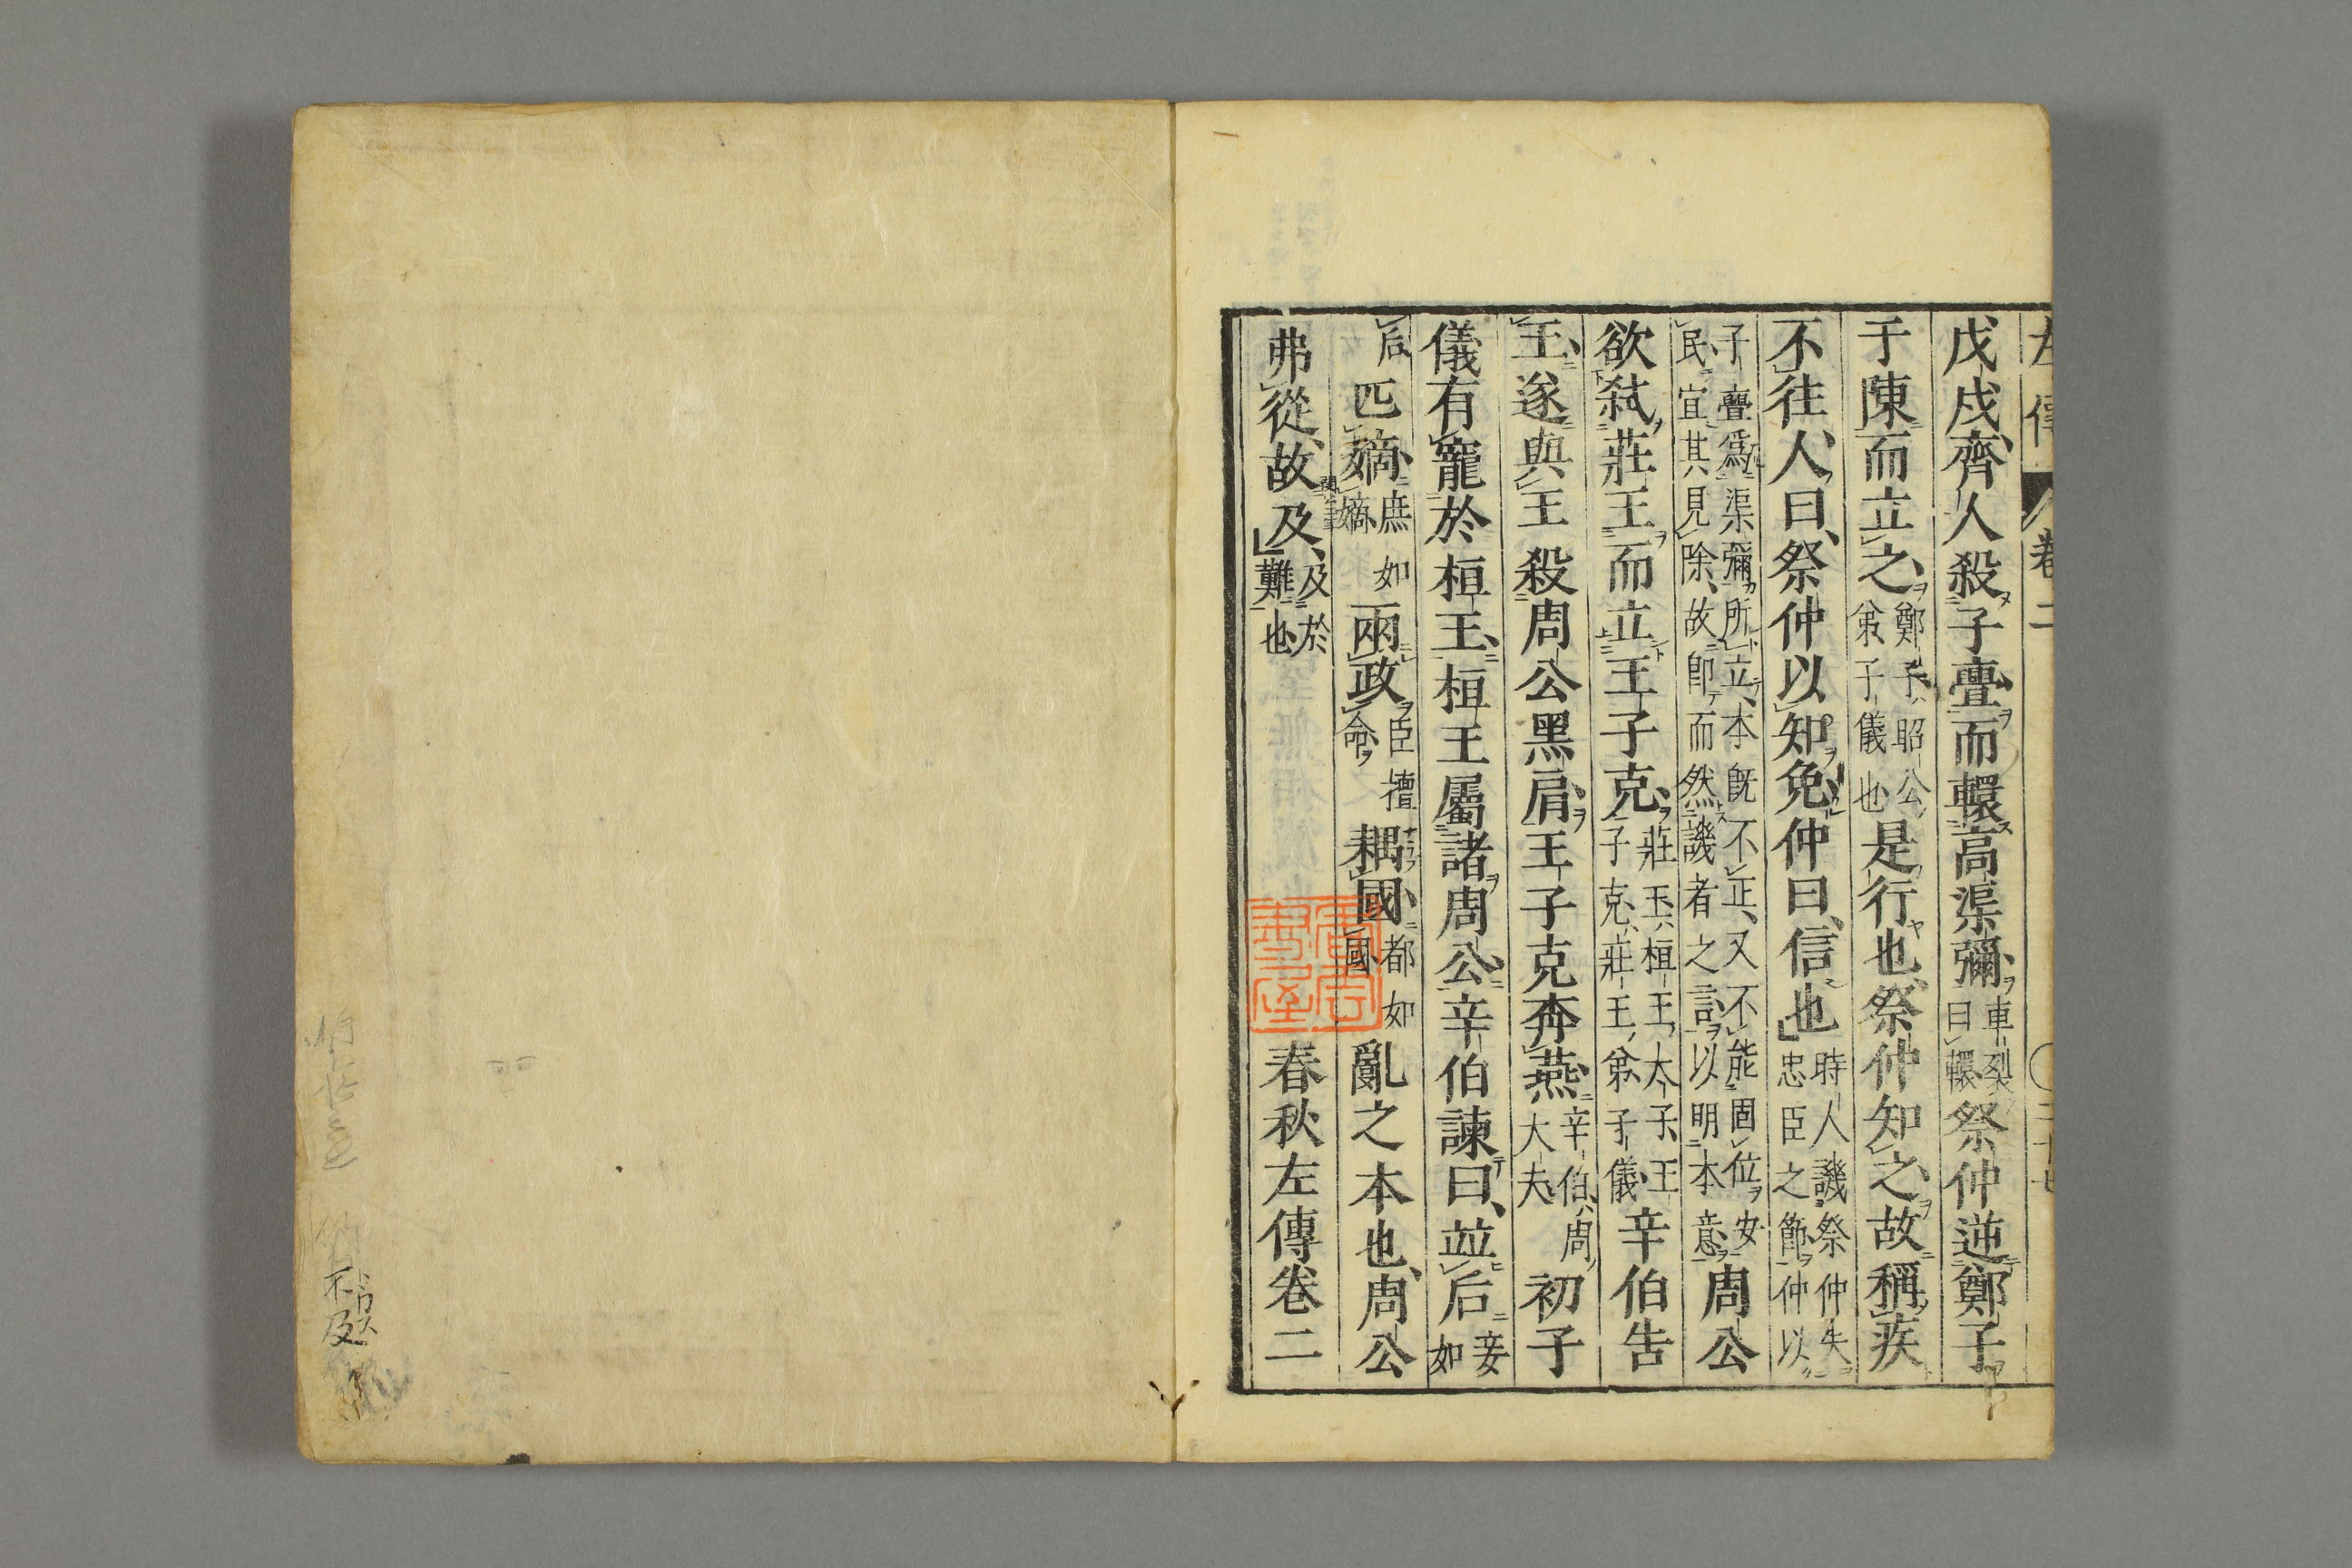 戊戌齊人殺子亹而轘高渠彌車裂曰轘祭仲逆鄭子
于陳而立之鄭子昭公弟子儀也是行也祭仲知之故稱疾
不往人曰祭仲以知免仲曰信也時人譏祭仲失忠臣之節仲以
子亹爲渠彌所立本既不正又不能固位安民宜其見除故即而然譏者之言以明本意周公
欲弒莊王而立王子克莊王桓王大子王子克莊王弟子儀辛伯告
王遂與王殺周公黑肩王子克奔燕辛伯周大夫初子
儀有寵於桓王桓王屬諸周公辛伯諫曰並后妾如
后匹嫡庶如嫡兩政臣擅命耦國都如國亂之本也周公
弗從故及及於難也
春秋左傳卷二
不及